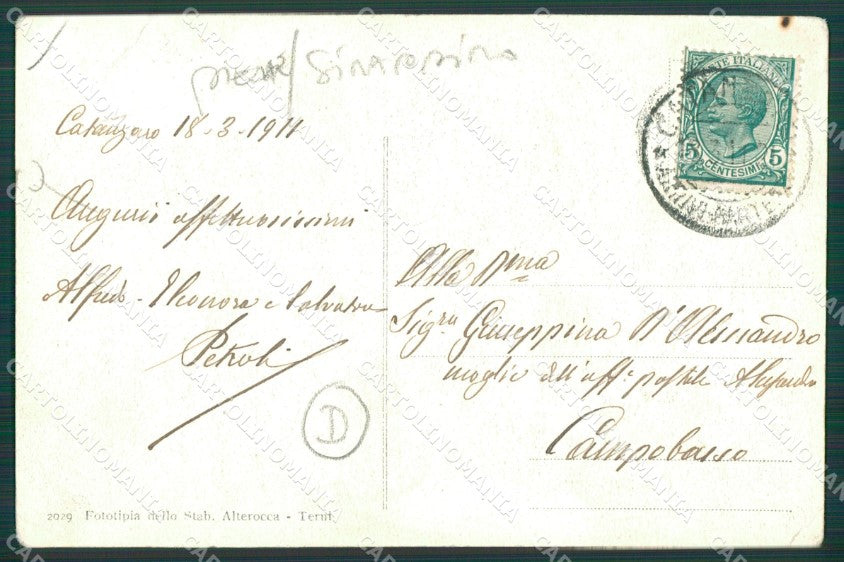 Catanzaro 18-3-1911
Auguri affettuosissimi
Alfredo - Eleonora e Salvatore
Petroli
D
2029 Fototipia dello Stab. Alterocca - Terni
POSTE ITALIANE
5 CENTESIMI 5
ARRIVI E PARTENZE
Alla
Sigra Giuseppina D'Alessandro
moglie dell'uffe postale
Campobasso
CARTOLINOMANIA